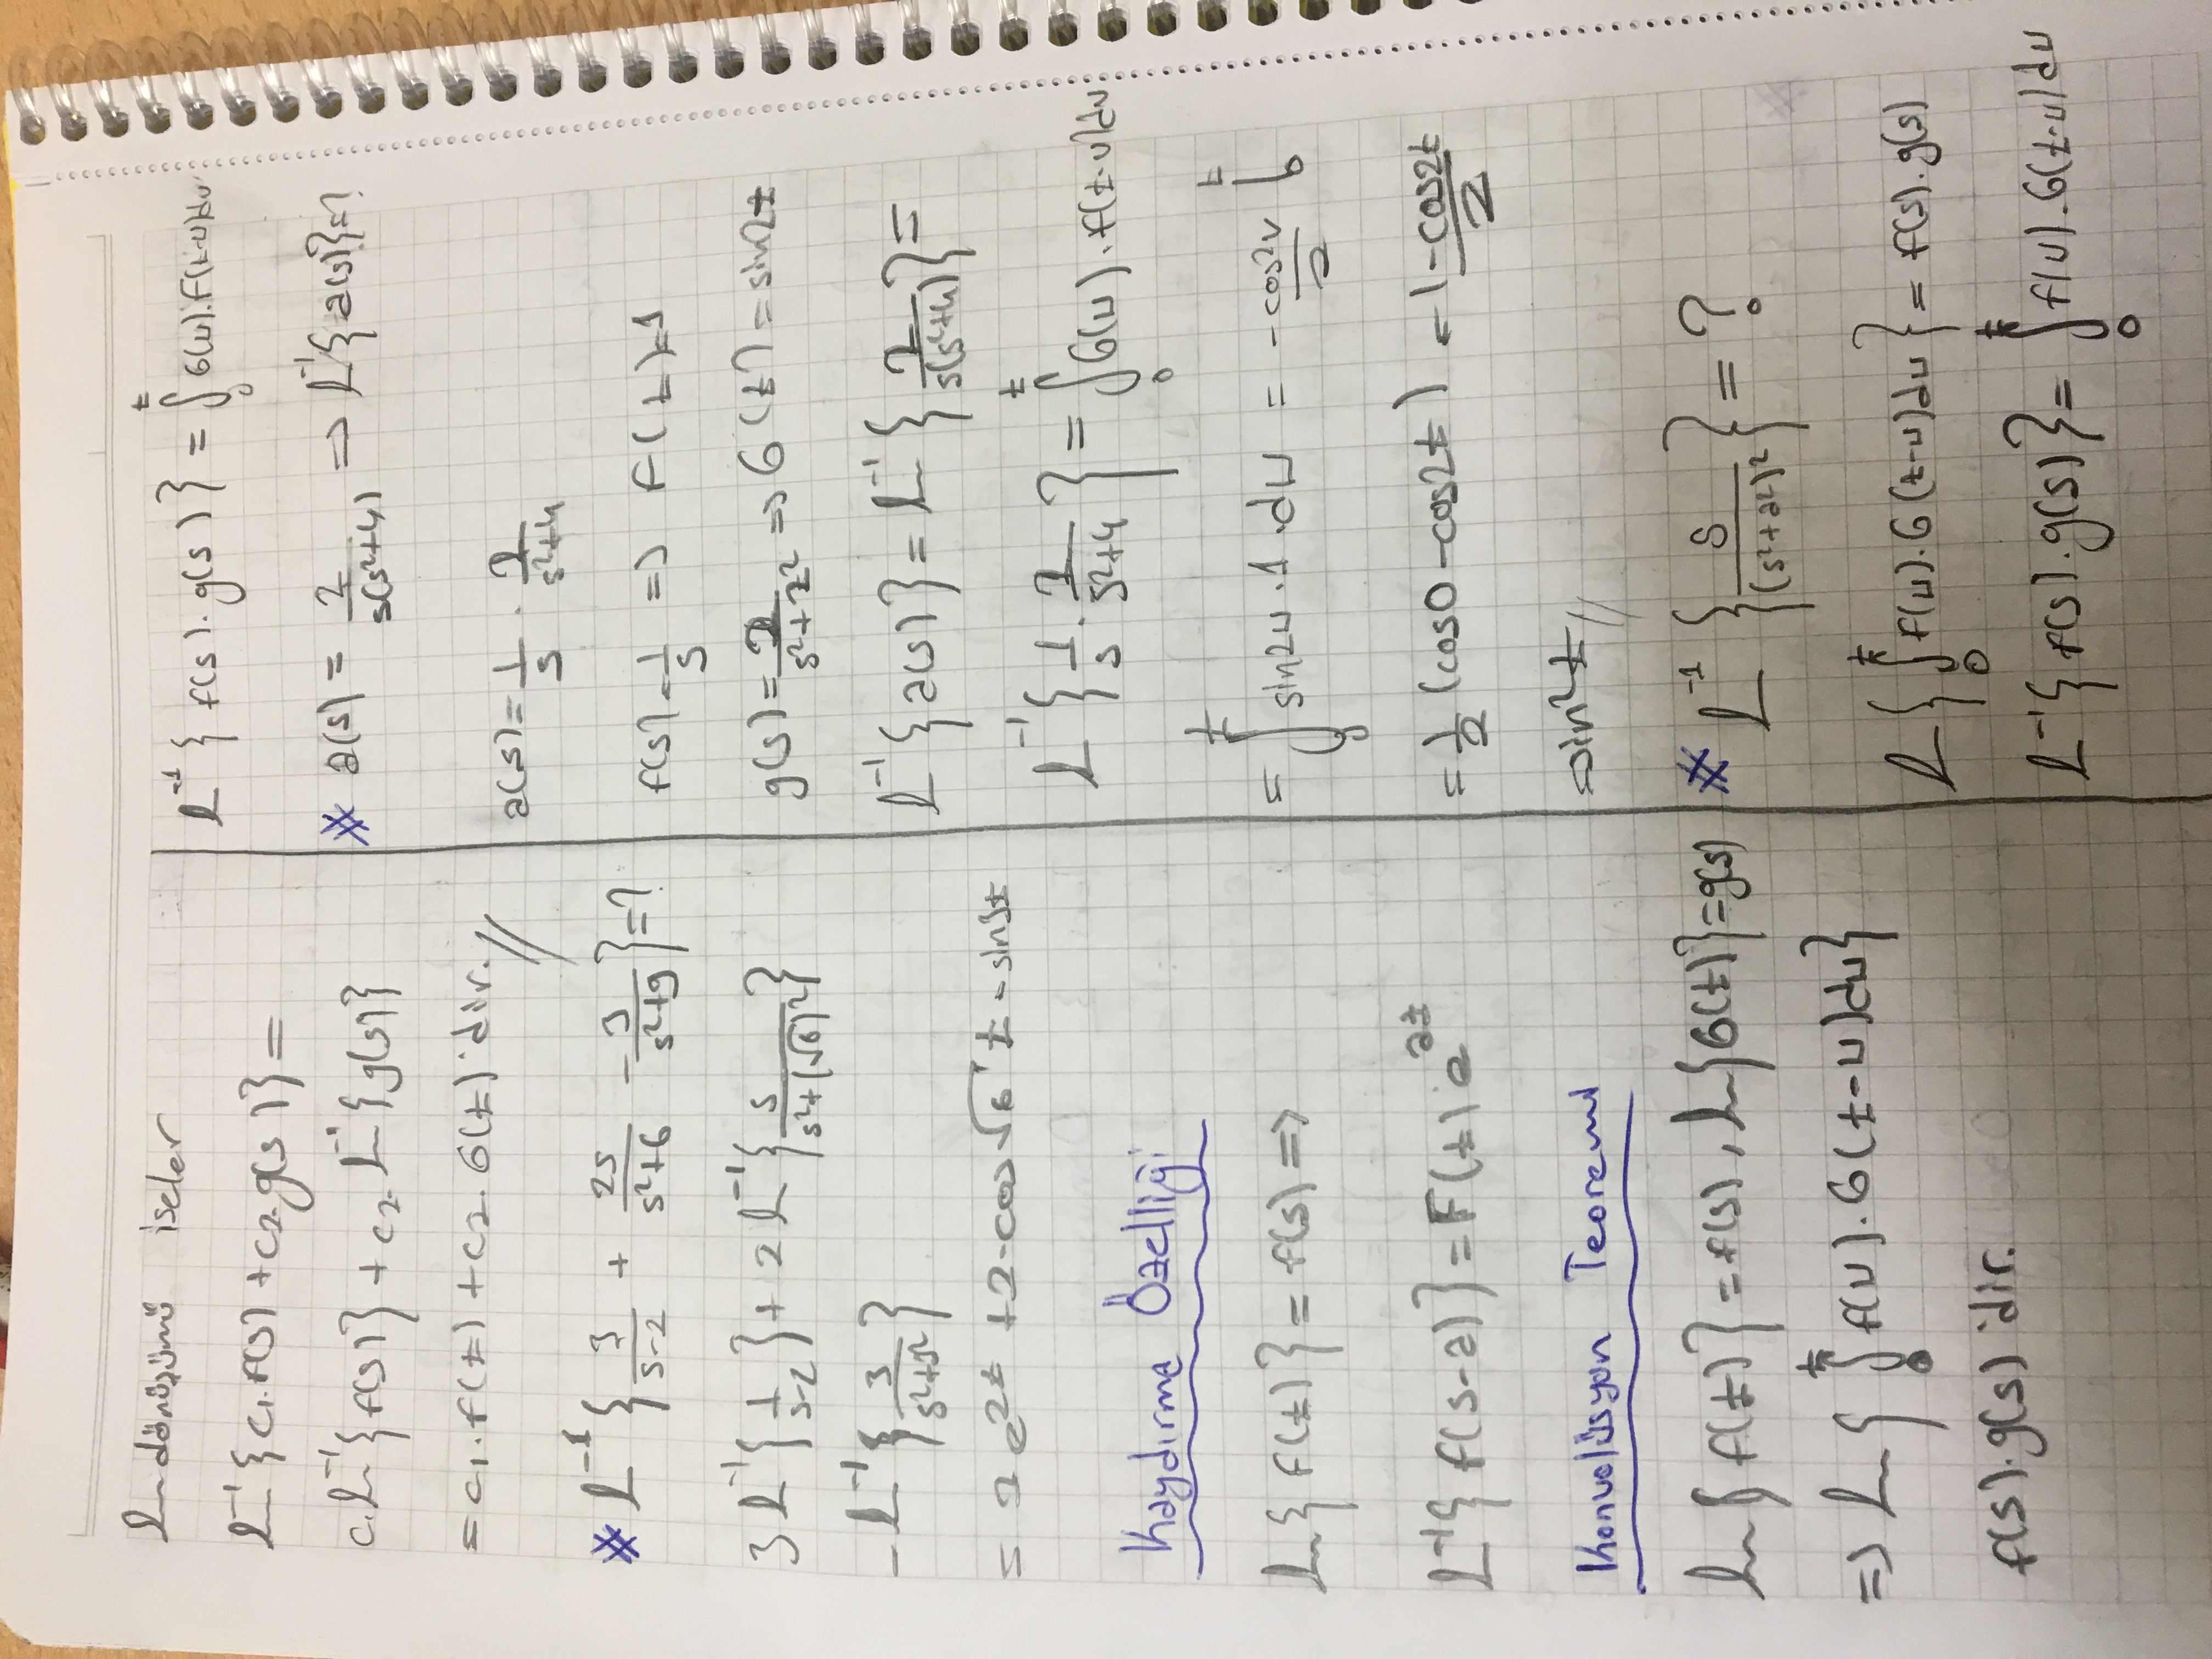 L dönüşümü iseler
L⁻¹{c₁.f(s) + c₂.g(s)} =
c.L⁻¹{f(s)} + c₂.L⁻¹{g(s)}
= c₁.F(t) + c₂.G(t)'dir.//
* L⁻¹{3/(s-2) + 2s/(s²+6) - 3/(s²+9)} = ?
3 L⁻¹{1/(s-2)} + 2 L⁻¹{s/(s²+(√6)²)}
- L⁻¹{3/(s²+3²)}
= 3 e^(2t) + 2.cos√6 t - sin3t
Kaydırma Özelliği
L{F(t)} = f(s) =>
L⁻¹{f(s-a)} = F(t).e^(at)
Konvolüsyon Teoremi
L{F(t)} = f(s), L{G(t)} = g(s)
=> L{∫₀ᵗ F(u).G(t-u)du}
f(s).g(s)'dir.
L⁻¹{f(s).g(s)} = ∫₀ᵗ G(u).F(t-u)du
* a(s) = 2/(s(s²+4)) => L⁻¹{a(s)} = ?
a(s) = 1/s . 2/(s²+4)
f(s) = 1/s => F(t) = 1
g(s) = 2/(s²+2²) => G(t) = sin2t
L⁻¹{a(s)} = L⁻¹{2/(s(s²+4))} =
L⁻¹{1/s . 2/(s²+4)} = ∫₀ᵗ G(u).F(t-u)du
= ∫₀ᵗ sin2u.1.du = -cos2u/2 |₀ᵗ
= 1/2 (cos0 - cos2t) = (1-cos2t)/2
= sin²t//
* L⁻¹{s/(s²+a²)²} = ?
L{∫₀ᵗ F(u).G(t-u)du} = f(s).g(s)
L⁻¹{f(s).g(s)} = ∫₀ᵗ F(u).G(t-u)du